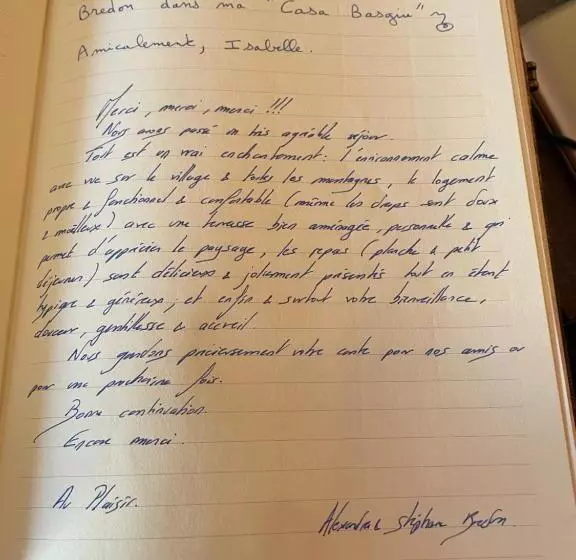 Bredon dans ma "Casa Basgiu"
Amicalement, Isabelle.
Merci, merci, merci !!!
Nous avons passé un très agréable séjour.
Tout est un vrai enchantement : l'environnement calme
avec vue sur le village & toutes les montagnes, le logement
propre & fonctionnel & confortable (même les draps sont doux
& moelleux) avec une terrasse bien aménagée, personnelle & qui
permet d'apprécier le paysage, les repas (planche & petit
déjeuner) sont délicieux & joliment présentés tout en étant
typique & généreux ; et enfin & surtout votre bienveillance,
douceur, gentillesse & accueil.
Nous gardons précieusement votre carte pour nos amis ou
pour une prochaine fois.
Bonne continuation.
Encore merci.
Au Plaisir.
Alexandra & Stéphane Bredon